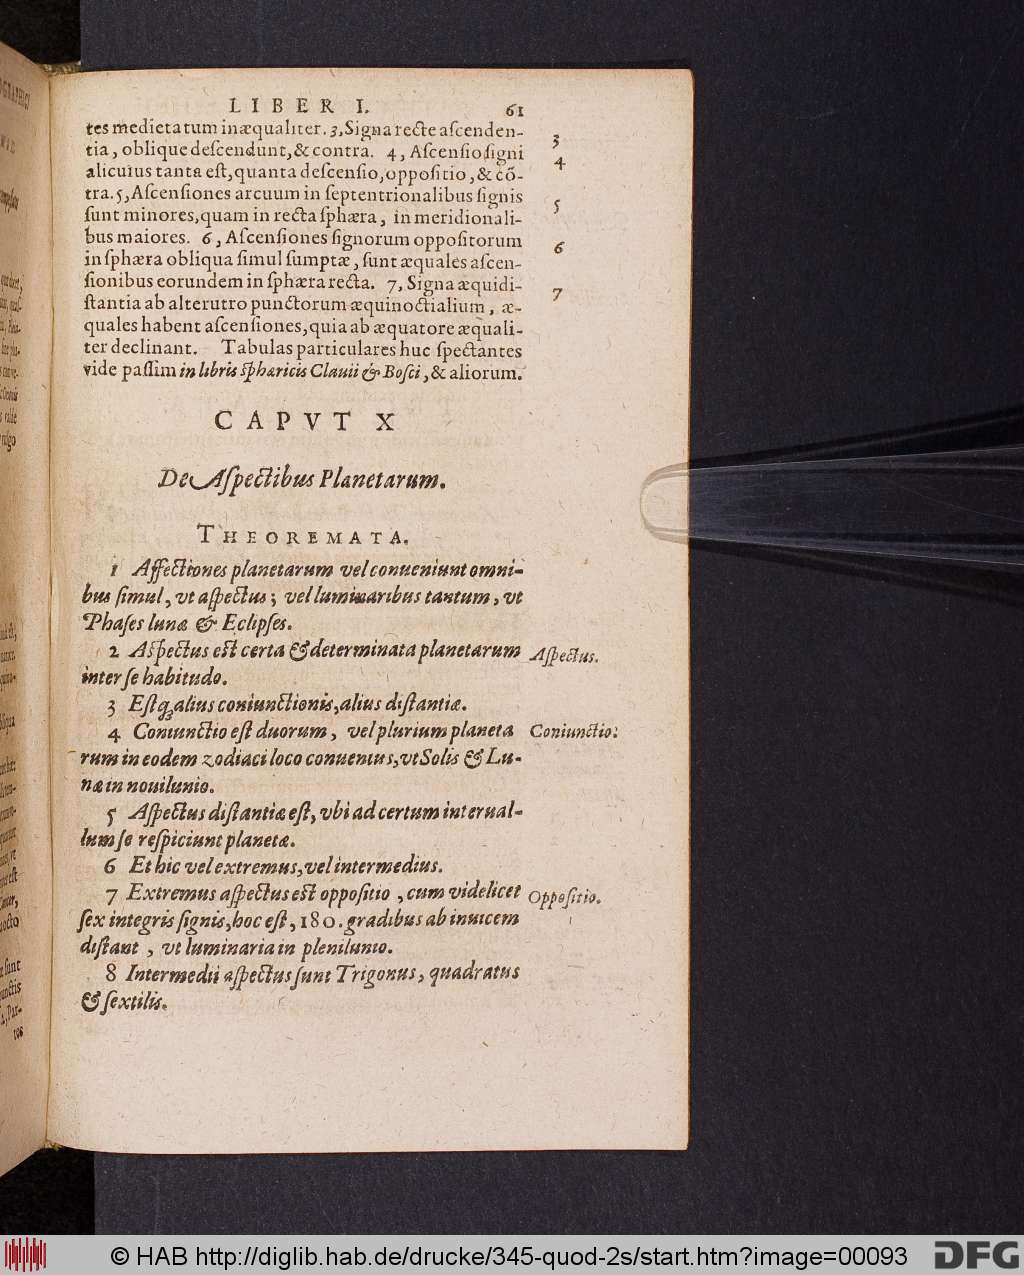 LIBER I. 61
tes medietatum inæqualiter. 3, Signa recte aſcenden-
tia, oblique deſcendunt, & contra. 4, Aſcenſio ſigni
alicuius tanta eſt, quanta deſcenſio, oppoſitio, & cõ-
tra. 5, Aſcenſiones arcuum in ſeptentrionalibus ſignis
ſunt minores, quam in recta ſphæra, in meridionali-
bus maiores. 6, Aſcenſiones ſignorum oppoſitorum
in ſphæra obliqua ſimul ſumptæ, ſunt æquales aſcen-
ſionibus eorundem in ſphæra recta. 7, Signa æquidi-
ſtantia ab alterutro punctorum æquinoctialium, æ-
quales habent aſcenſiones, quia ab æquatore æquali-
ter declinant. Tabulas particulares huc ſpectantes
vide paſſim in libris ſphæricis Clauii & Boſci, & aliorum.
3
4
5
6
7
CAPVT X
De Aſpectibus Planetarum.
THEOREMATA.
1 Affectiones planetarum vel conueniunt omni-
bus ſimul, vt aſpectus; vel luminaribus tantum, vt
Phaſes lunæ & Eclipſes.
2 Aſpectus eſt certa & determinata planetarum
inter ſe habitudo.
Aſpectus.
3 Eſtq́; alius coniunctionis, alius diſtantiæ.
4 Coniunctio eſt duorum, vel plurium planeta
rum in eodem zodiaci loco conuentus, vt Solis & Lu-
næ in nouilunio.
Coniunctio:
5 Aſpectus diſtantiæ eſt, vbi ad certum interual-
lum ſe reſpiciunt planetæ.
6 Et hic vel extremus, vel intermedius.
7 Extremus aſpectus eſt oppoſitio, cum videlicet
ſex integris ſignis, hoc eſt, 180. gradibus ab inuicem
diſtant, vt luminaria in plenilunio.
Oppoſitio.
8 Intermedii aſpectus ſunt Trigonus, quadratus
& ſextilis.
© HAB http://diglib.hab.de/drucke/345-quod-2s/start.htm?image=00093
DFG